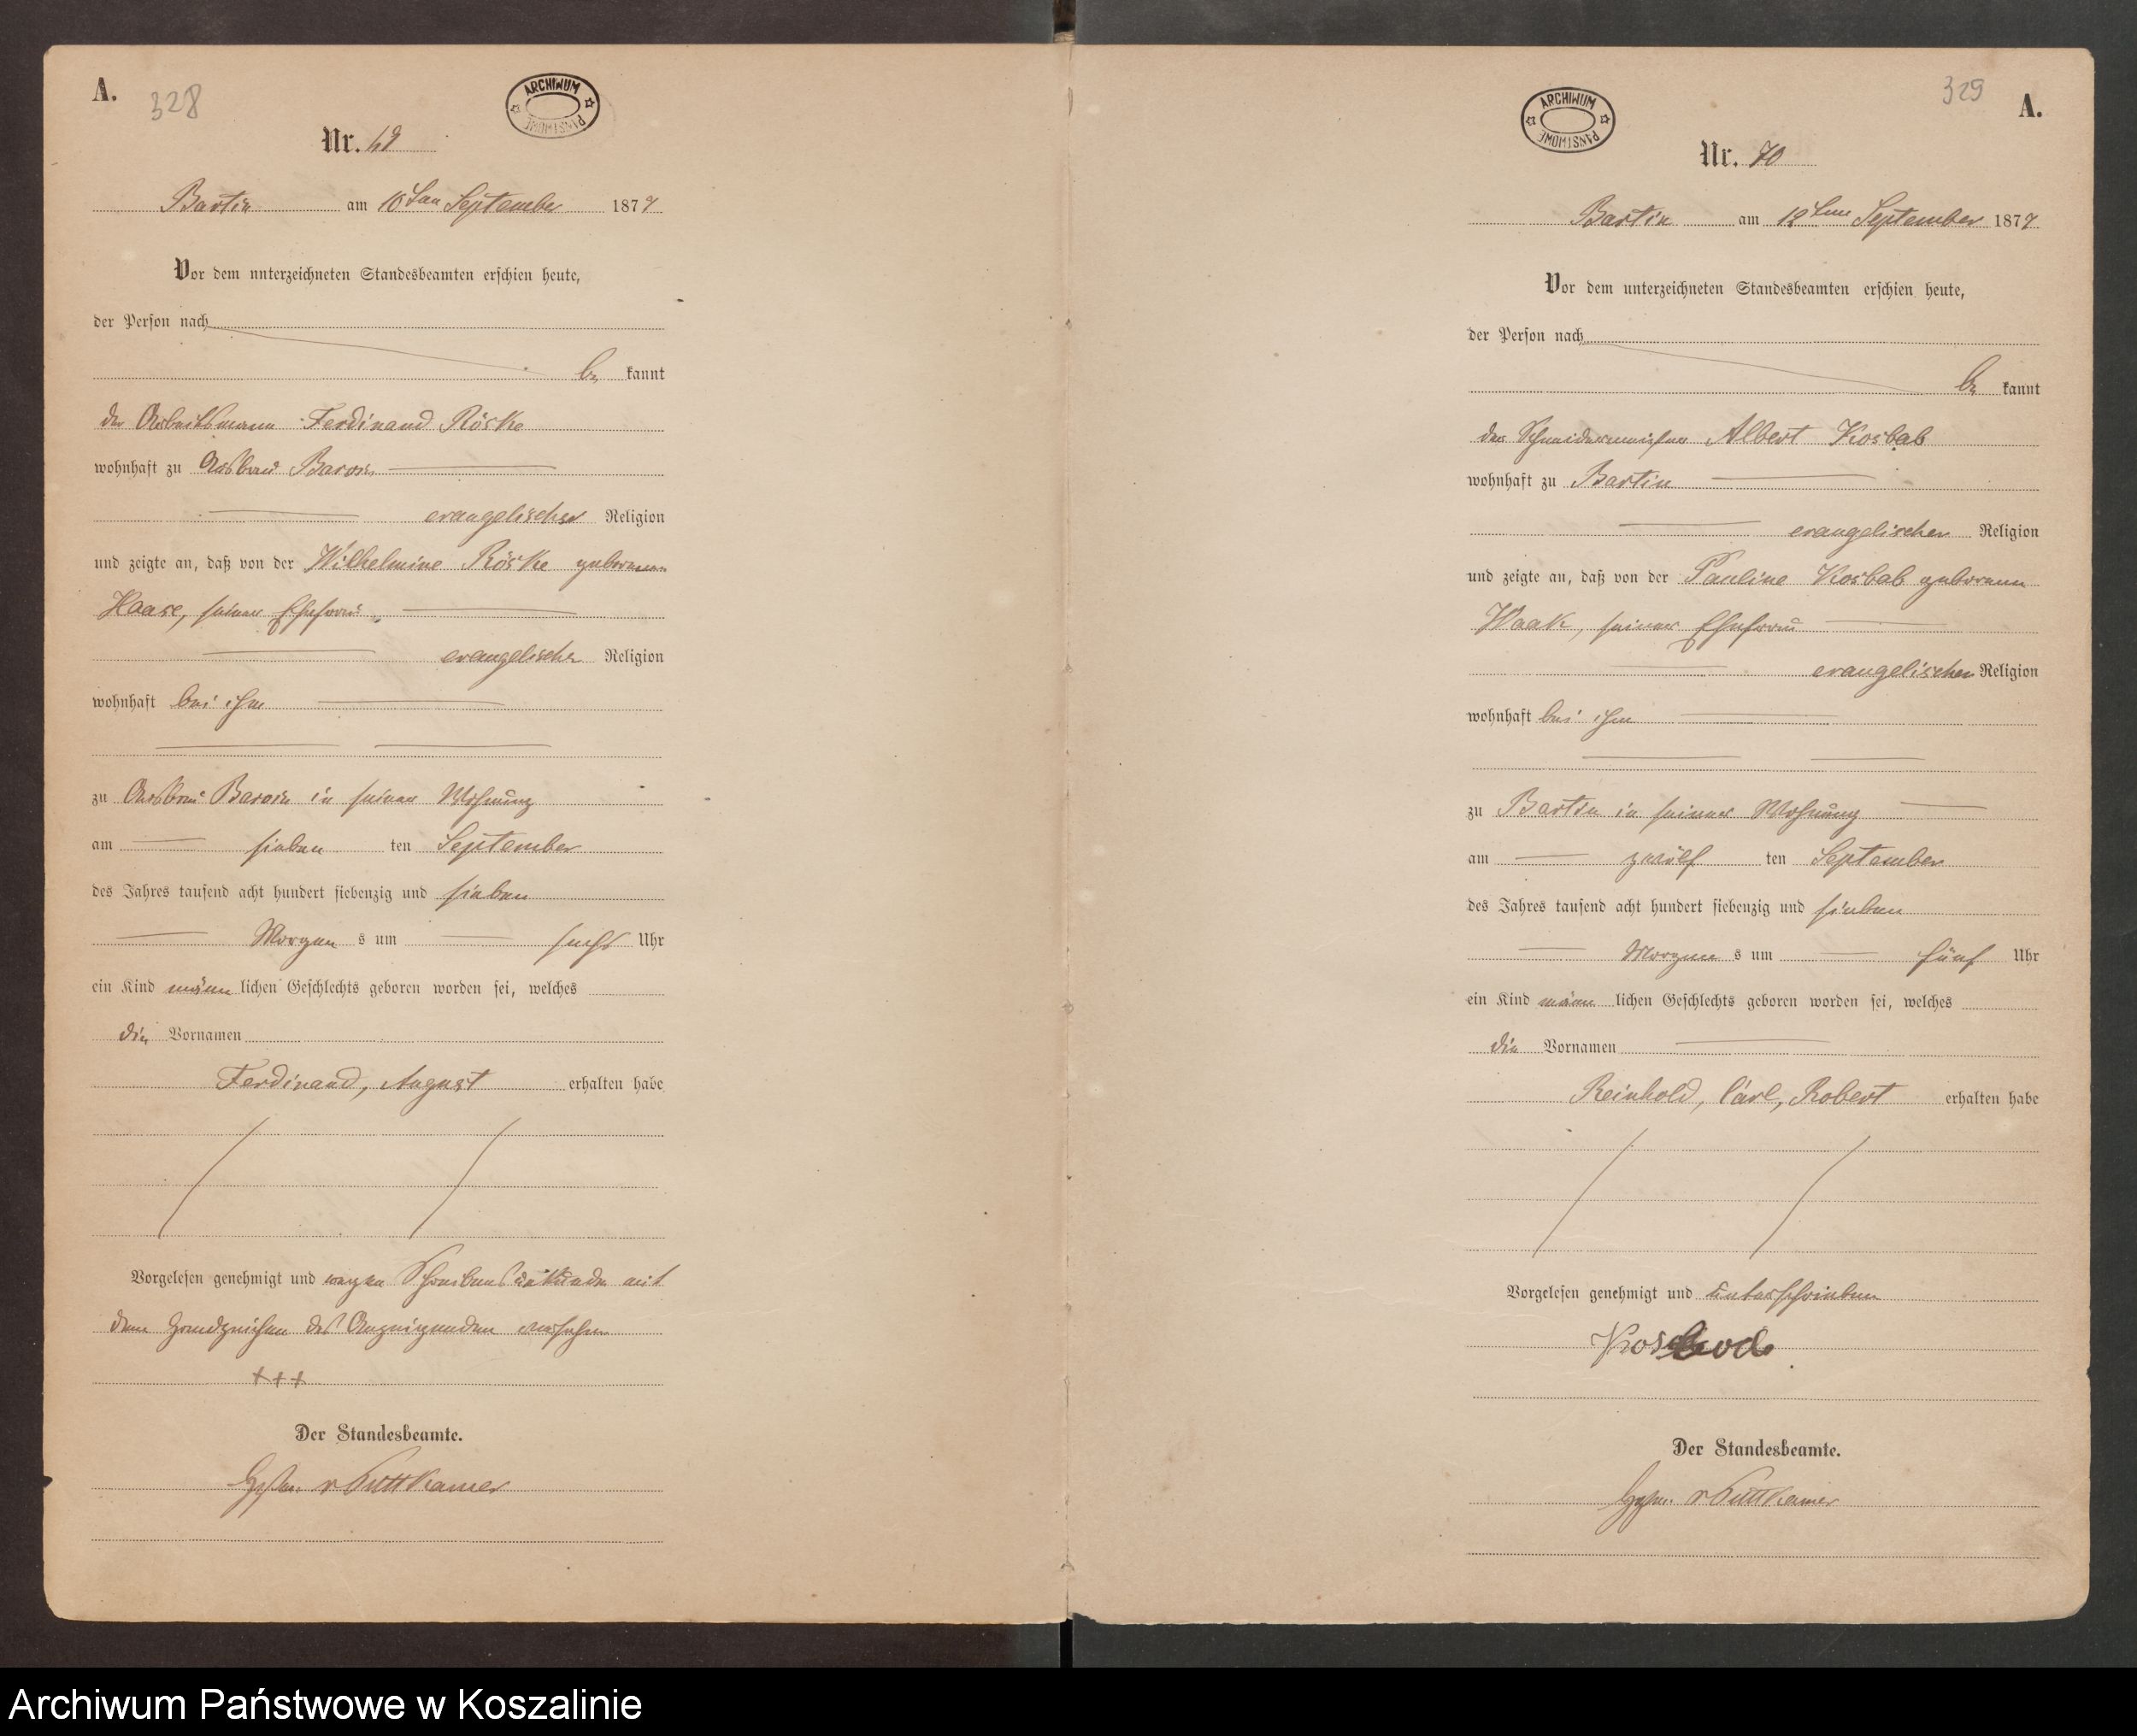 A. 328
ARCHIWUM PAŃSTWOWE
Nr. 69
Bartin am 10ten September 1877
Vor dem unterzeichneten Standesbeamten erschien heute,
der Person nach
be kannt
der Arbeitsmann Ferdinand Röske
wohnhaft zu Ausbau Barvin
evangelischer Religion
und zeigte an, daß von der Wilhelmine Röske geborenen
Haase, seiner Ehefrau,
evangelischer Religion
wohnhaft bei ihm
zu Ausbau Barvin in seiner Wohnung
am sieben ten September
des Jahres tausend acht hundert siebenzig und sieben
Morgen s um sechs Uhr
ein Kind männ lichen Geschlechts geboren worden sei, welches
die Vornamen
Ferdinand, August erhalten habe
Vorgelesen genehmigt und wegen Schreibensunkunde mit
dem Handzeichen des Anzeigenden versehen
+++
Der Standesbeamte.
v Puttkamer
329 A.
ARCHIWUM PAŃSTWOWE
Nr. 70
Bartin am 12ten September 1877
Vor dem unterzeichneten Standesbeamten erschien heute,
der Person nach
be kannt
der Schneidermeister Albert Kosbab
wohnhaft zu Bartin
evangelischer Religion
und zeigte an, daß von der Pauline Kosbab geborenen
Haak, seiner Ehefrau
evangelischer Religion
wohnhaft bei ihm
zu Bartin in seiner Wohnung
am zwölf ten September
des Jahres tausend acht hundert siebenzig und sieben
Morgen s um fünf Uhr
ein Kind männ lichen Geschlechts geboren worden sei, welches
die Vornamen
Reinhold, Carl, Robert erhalten habe
Vorgelesen genehmigt und unterschrieben
Der Standesbeamte.
v Puttkamer
Archiwum Państwowe w Koszalinie